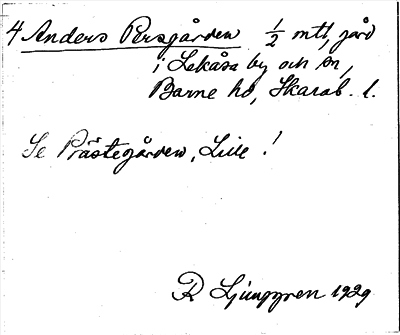 4 Anders Persgården 1/2 mtl, jord
i Lekåsa by och sn,
Barne hd, Skarab. l.
Se Prästegården, Lille!
R Ljunggren 1929